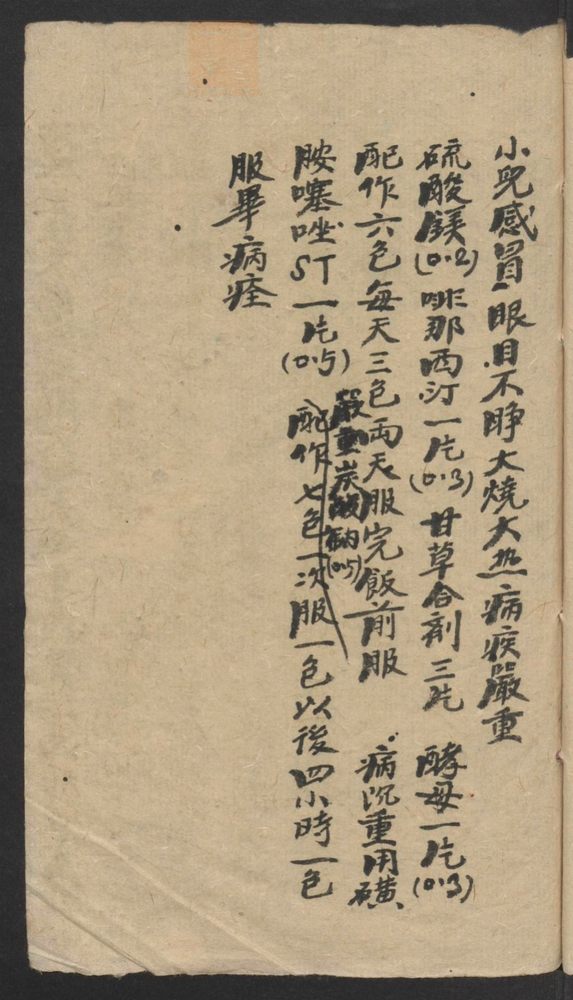 小兒感冒眼目不睁大燒大热病疾嚴重
硫酸鎂(0.2)啡那西汀一片(0.3)甘草合劑三片 酵母一片(0.3)
配作六包每天三包兩天服完飯前服 病沉重用磺
嚴重炭酸鈉(0.5)
胺噻唑ST一片(0.5) 配作七包一次服一包以後四小時一包
服畢病痊